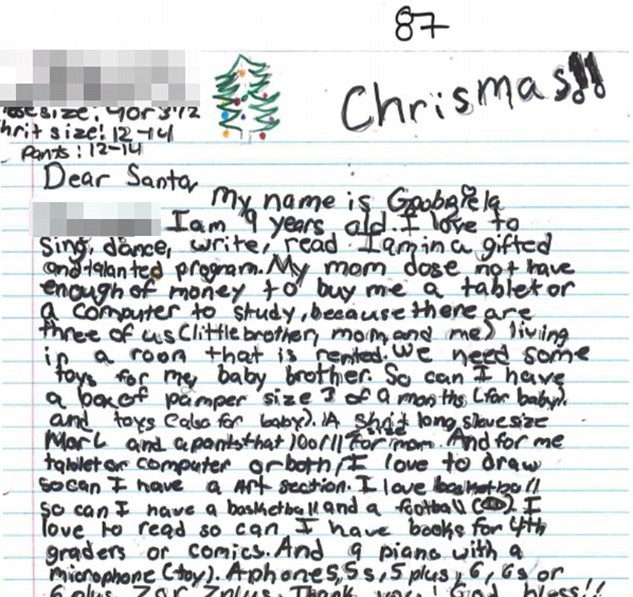 87
Chrismas!!
size: 4 or 3 1/2
hrit size: 12-14
Pants: 12-14
Dear Santa,
My name is
I am 9 years old. I love to
sing, dance, write, read I am in a gifted
and talanted program. My mom dose not have
enough of money to buy me a tablet or
a computer to study, because there are
three of us (little brother, mom, and me) living
in a room that is rented. We need some
toys for my baby brother. So can I have
a box of pamper size 3 of 9 months (for baby).
and toys (also for baby). A long slave size
M or L and a pants that 10 or 11 for mom. And for me
tablet or computer or both! I love to draw
so can I have a Art section. I love basketball
so can I have a basketball and a football. I
love to read so can I have books for 4th
graders or comics. And a piano with a
microphone (toy). A phone 5, 5s, 5 plus, 6, 6s or
6 plus, 7 or 7 plus. Thank you! God bless!!